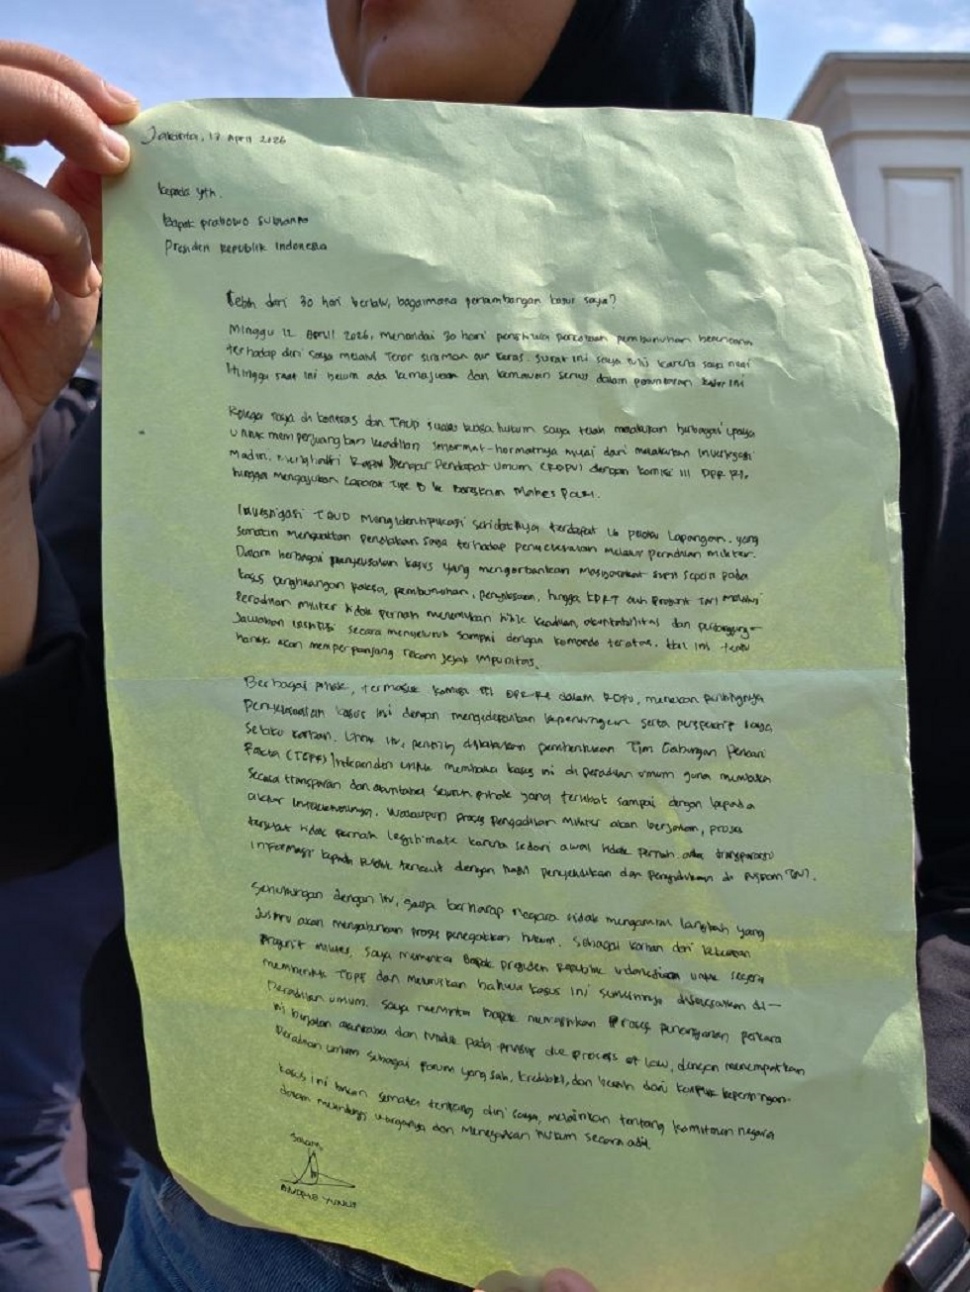 Jakarta, 17 April 2026
Kepada yth.
Bapak Prabowo Subianto
Presiden Republik Indonesia
Lebih dari 30 hari berlalu, bagaimana perkembangan kasus saya?
Minggu 12 April 2026, menandai 30 hari peristiwa percobaan pembunuhan berencana
terhadap diri saya melalui Teror siraman air keras. Surat ini saya tulis karena saya
Hingga saat ini belum ada kemajuan dan kemauan serius dalam penuntasan kasus ini
Kolega saya di kontras dan TAUD selaku kuasa hukum saya telah melakukan berbagai upaya
untuk memperjuangkan keadilan sehormat-hormatnya mulai dari melakukan investigasi
Madiri, menghadiri Rapat Dengar Pendapat Umum (RDPU) dengan Komisi III DPR RI,
hingga mengajukan Laporan Tipe B ke Bareskrim Mabes Polri.
Investigasi TAUD Mengidentifikasi setidaknya terdapat 16 pelaku Lapangan. yang
semakin menguatkan penolakan saya terhadap penyelesaian melalui peradilan militer.
Dalam berbagai penyelesaian kasus yang mengorbankan masyarakat sipil seperti pada
kasus penghilangan paksa, pembunuhan, penyiksaan, hingga KDRT oleh Prajurit TNI melalui
Peradilan militer tidak pernah menemukan titik keadilan, akuntabilitas dan pertanggung-
Jawaban institusi secara menyeluruh sampai dengan komando teratas. Hal ini tentu
hanya akan memperpanjang rekam jejak impunitas.
Berbagai pihak, termasuk komisi III DPR-RI dalam RDPU, menekan pentingnya
Penyelesaian kasus ini dengan mengedepankan kepentingan serta perspektif saya
Selaku korban. Untuk itu, penting dilakukan pembentukan Tim Gabungan Pencari
Fakta (TGPF) Independen untuk membuka kasus ini di peradilan umum guna membuka
secara transparan dan akuntabel seluruh pihak yang terlibat sampai dengan kepada
aktor intelektualnya. Walaupun proses pengadilan militer akan berjalan, proses
tersebut tidak pernah legitimate karena sedari awal tidak pernah ada transparansi
informasi kepada publik terkait dengan hasil penyelidikan dan penyidikan di Puspom TNI.
Sehubungan dengan itu, saya berharap negara tidak mengambil langkah yang
Justru akan mengaburkan proses penegakkan hukum. Sebagai korban dari kekerasan
Prajurit militer, Saya meminta Bapak presiden Republik Indonesia untuk segera
membentuk TGPF dan memastikan bahwa kasus ini semestinya diselesaikan di-
Peradilan umum. Saya meminta bapak memastikan proses penanganan perkara
ini berjalan akuntabel dan tunduk pada prinsip due process of law, dengan menempatkan
Peradilan umum sebagai forum yang sah, kredibel, dan bersih dari konflik kepentingan.
Kasus ini bukan semata tentang diri saya, melainkan tentang komitmen negara
dalam melindungi warganya dan Menegakkan hukum secara adil
Salam,
ANDRIE YUNUS